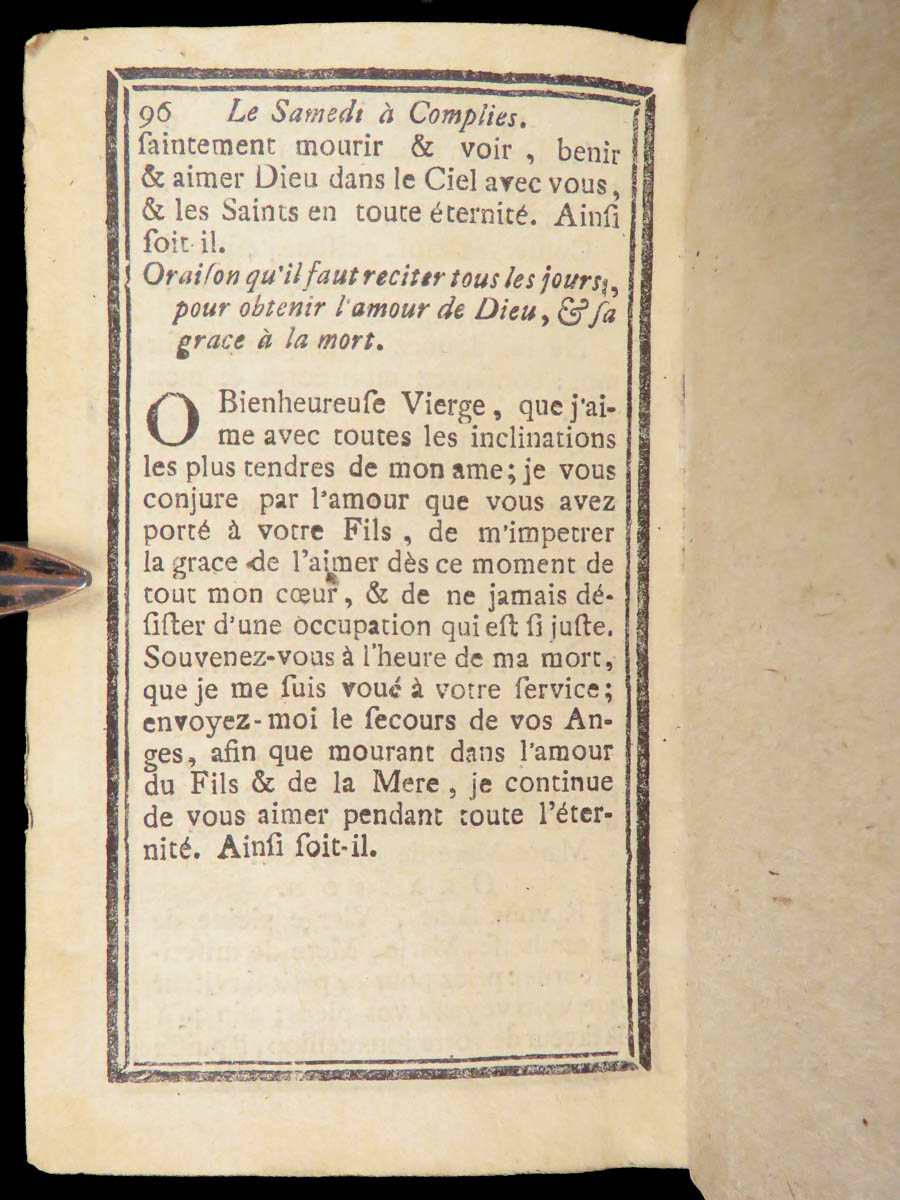 96 Le Samedi à Complies.
ſaintement mourir & voir , benir
& aimer Dieu dans le Ciel avec vous,
& les Saints en toute éternité. Ainſi
ſoit-il.
Oraiſon qu'il faut reciter tous les jours,
pour obtenir l'amour de Dieu, & ſa
grace à la mort.
O Bienheureuſe Vierge, que j'ai-
me avec toutes les inclinations
les plus tendres de mon ame; je vous
conjure par l'amour que vous avez
porté à votre Fils , de m'impetrer
la grace de l'aimer dès ce moment de
tout mon cœur, & de ne jamais dé-
ſiſter d'une occupation qui eſt ſi juſte.
Souvenez-vous à l'heure de ma mort,
que je me ſuis voué à votre ſervice;
envoyez-moi le ſecours de vos An-
ges, afin que mourant dans l'amour
du Fils & de la Mere , je continue
de vous aimer pendant toute l'éter-
nité. Ainſi ſoit-il.